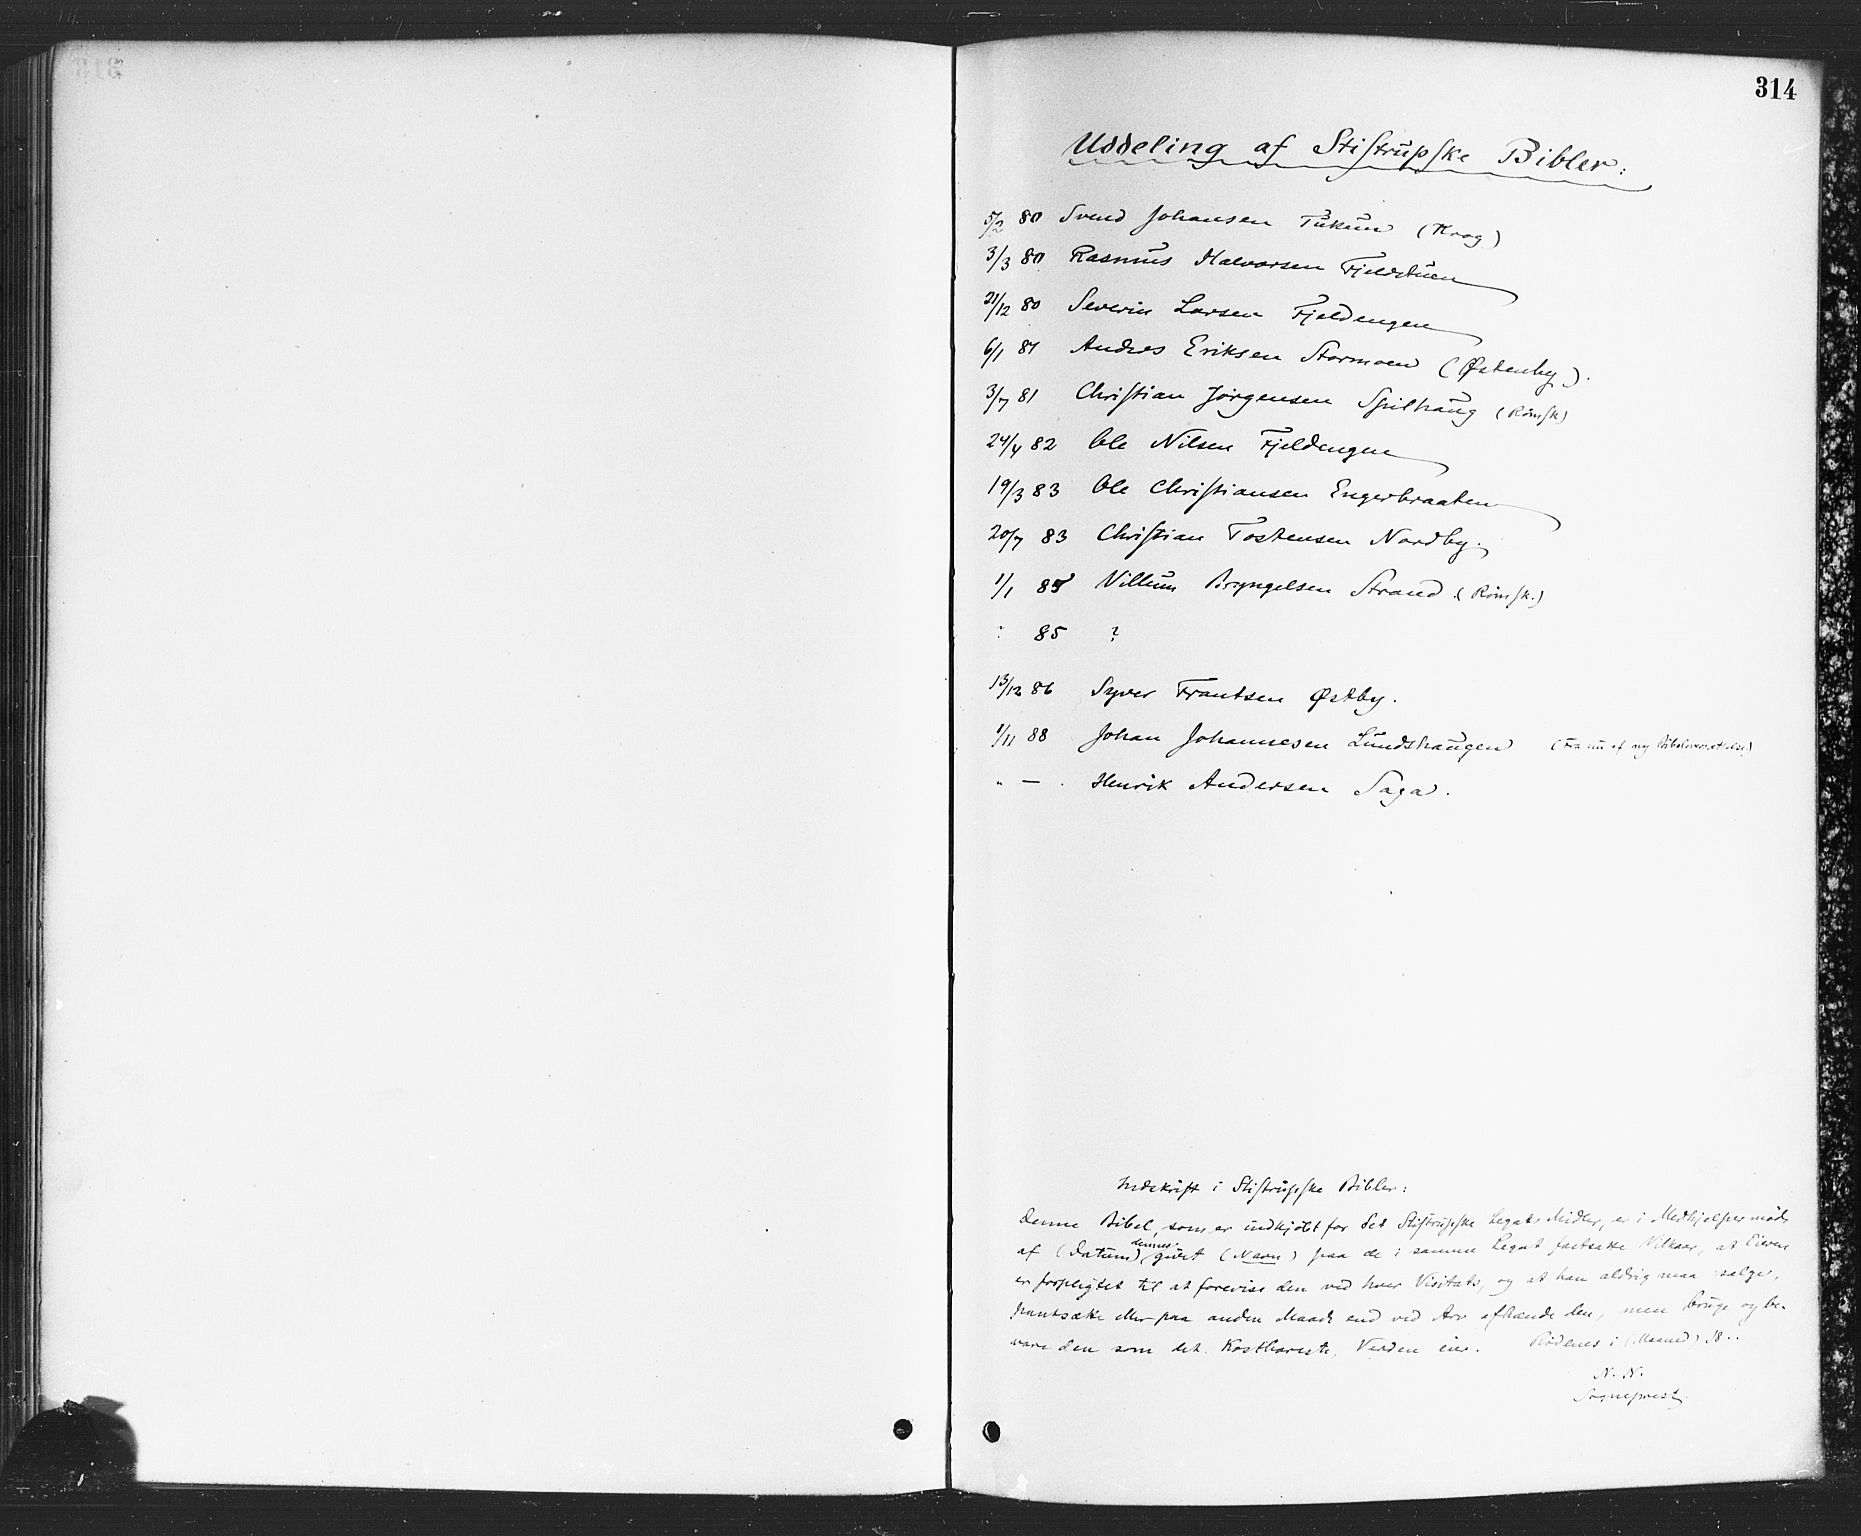 314
Uddeling af Stistrupske Bibler:
5/2 80 Svend Johansen Tukun (Krog)
3/3 80 Rasmus Halvorsen Fjeldstuen
21/12 80 Severin Larsen Fjeldengen
6/1 81 Andres Eriksen Stormoen (Østenby).
3/7 81 Christian Jørgensen Spilhaug (Rømsk)
24/4 82 Ole Nilsen Fjeldengen
19/3 83 Ole Christiansen Engerbraaten
20/7 83 Christian Tostensen Nordby.
1/1 85 Villum Bryngelsen Strand (Rømsk.)
" 85 ?
13/12 86 Syver Frantsen Østby.
1/11 88 Johan Johannesen Lundshaugen (Fra nu af ny Bibeloversættelse)
" — . Henrik Andersen Saga.
Indskrift i Stistrupske Bibler:
Denne Bibel, som er indkjøbt for det Stistrupske Legats Midler, er i Medhjelpermøde
af (Datum) dennes givet (Navn) paa de i samme Legat fastsatte Vilkaar, at Eieren
er forpligtet til at forevise den ved hver Visitats, og at han aldrig maa sælge,
pantsætte eller paa anden Maade end ved Arv afhænde den, men bruge og be-
vare den som det Kostbareste, Verden eier. Rødenes i (Maaned) 18..
N. N.
Sogneprest.